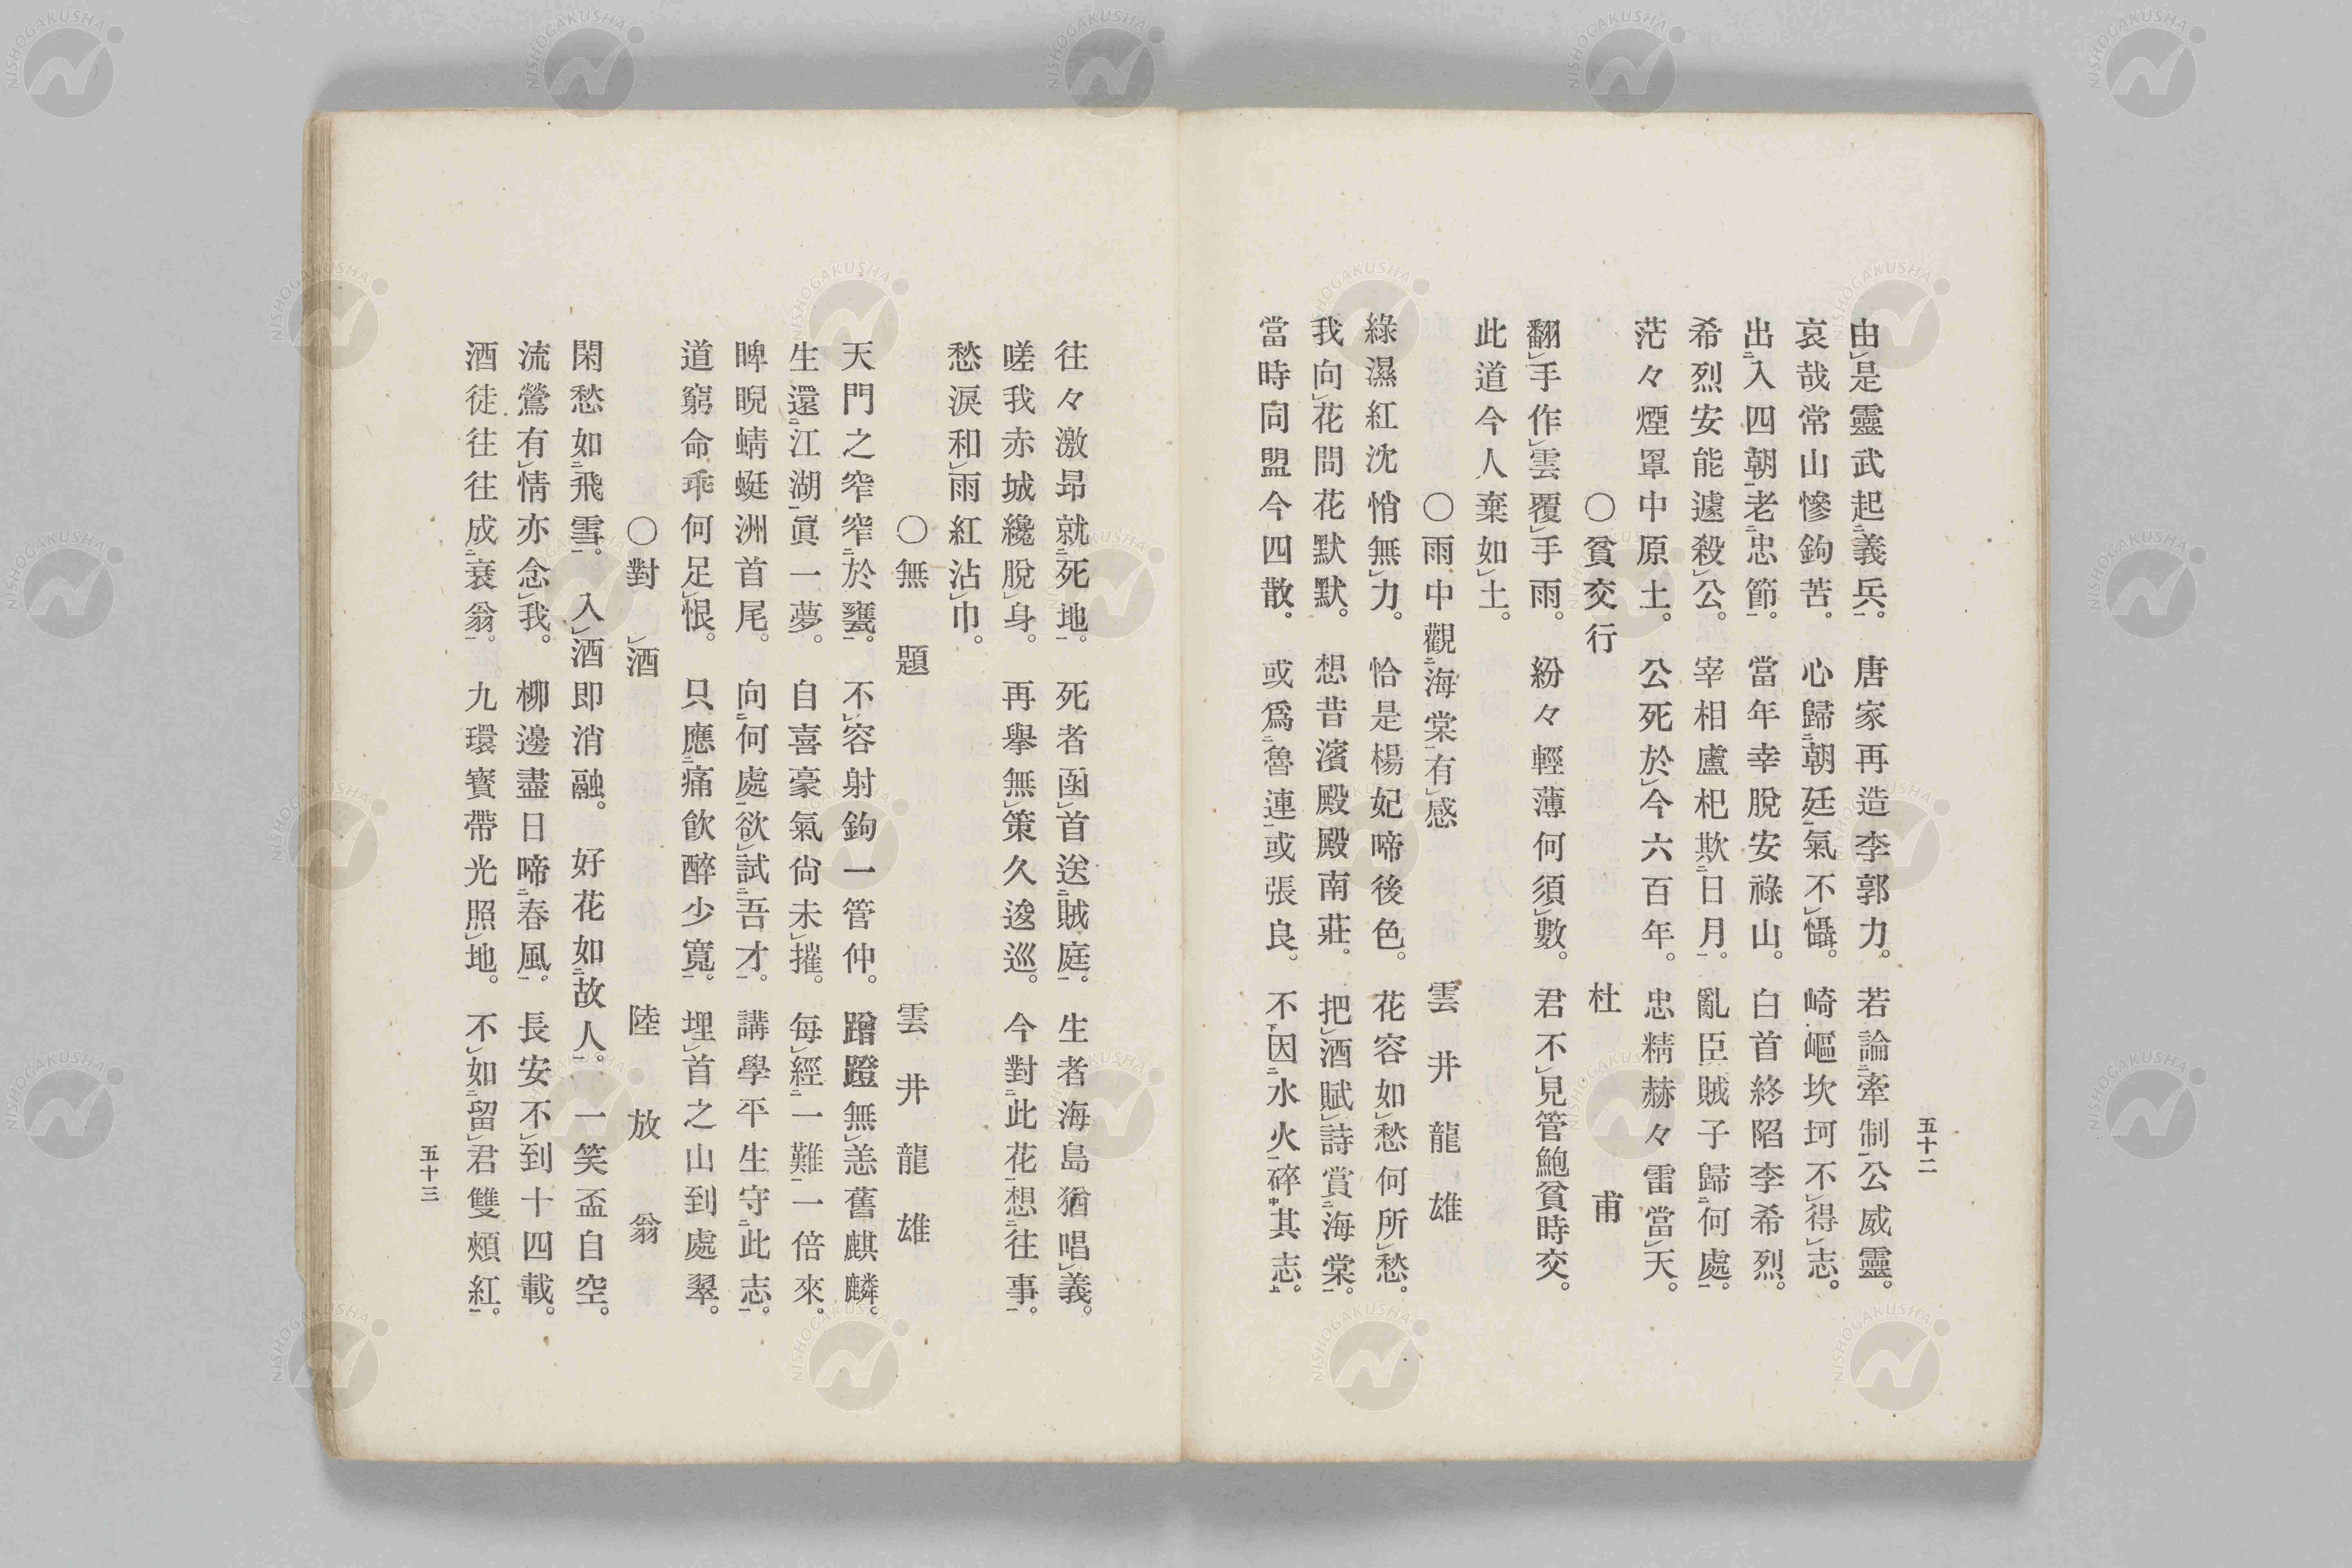 五十二
由是靈武起義兵。唐家再造李郭力。若論牽制公威靈。
哀哉常山慘鉤苦。心歸朝廷氣不懾。崎嶇坎坷不得志。
出入四朝老忠節。當年幸脫安祿山。白首終陷李希烈。
希烈安能遽殺公。宰相盧杞欺日月。亂臣賊子歸何處。
茫々煙罩中原土。公死於今六百年。忠精赫々雷當天。
〇貧交行 杜甫
翻手作雲覆手雨。紛々輕薄何須數。君不見管鮑貧時交。
此道今人棄如土。
〇雨中觀海棠有感 雲井龍雄
綠濕紅沈悄無力。恰是楊妃啼後色。花容如愁何所愁。
我向花問花默默。想昔濱殿殿南莊。把酒賦詩賞海棠。
當時同盟今四散。或爲魯連或張良。不因水火碎其志。
往々激昂就死地。死者函首送賊庭。生者海島猶唱義。
嗟我赤城纔脫身。再擧無策久逡巡。今對此花想往事。
愁淚和雨紅沾巾。
〇無題 雲井龍雄
天門之窄窄於甕。不容射鉤一管仲。蹭蹬無恙舊麒麟。
生還江湖眞一夢。自喜豪氣尙未摧。每經一難一倍來。
睥睨蜻蜓洲首尾。向何處欲試吾才。講學平生守此志。
道窮命乖何足恨。只應痛飮醉少寬。埋首之山到處翠。
〇對酒 陸放翁
閑愁如飛雪。入酒即消融。好花如故人。一笑盃自空。
流鶯有情亦念我。柳邊盡日啼春風。長安不到十四載。
酒徒往往成衰翁。九環寶帶光照地。不如留君雙頰紅。
五十三
NISHOGAKUSHA